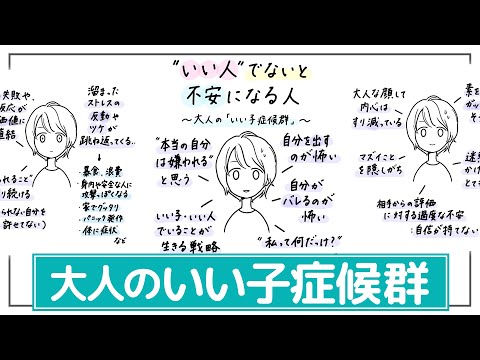 "いい人"でないと
不安になる人
〜大人の「いい子症候群」〜
失敗や、
反応が
価値に
直結
られること"
り続ける
られない自分を
許せない)
溜まった
ストレスの
反動や
ツケが
跳ね返ってくる..
・暴食、浪費
・身内や安全な人に
攻撃っぽくなる
・家でグッタリ
・パニック発作
・体に症状
など
"本当の自分
は嫌われる"
と思う
いい子・いい人
でいることが
生きる戦略
自分を出す
のが怖い
自分が
バレるのが
怖い
"私って何だっけ?"
大人な顔して
内心は
すり減っている
マズイこと
を隠しがち
相手からの評価
に対する過度な不安
:自信が持てない
素を
迷惑
かけ
とて
大人のいい子症候群